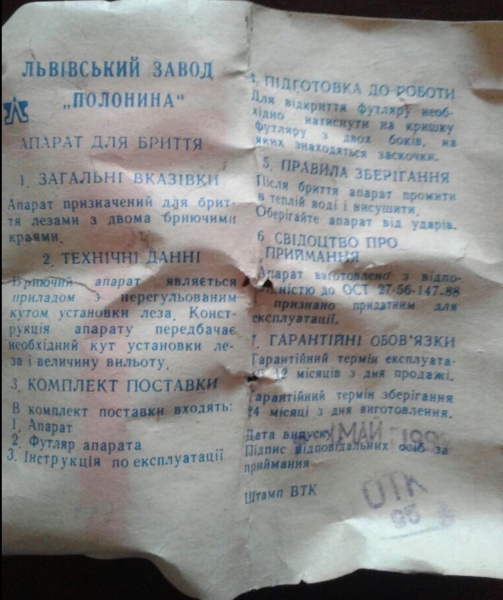 ЛЬВІВСЬКИЙ ЗАВОД
„ПОЛОНИНА“
АПАРАТ ДЛЯ БРИТТЯ
1. ЗАГАЛЬНІ ВКАЗІВКИ
Апарат призначений для брит-
тя лезами з двома бриючими
краями.
2. ТЕХНІЧНІ ДАННІ
Бриючий апарат являється
приладом з нерегульованим
кутом установки леза. Конст-
рукція апарату передбачає
необхідний кут установки ле-
за і величину вильоту.
3. КОМПЛЕКТ ПОСТАВКИ
В комплект поставки входять:
1. Апарат
2. Футляр апарата
3. Інструкція по експлуатації
4. ПІДГОТОВКА ДО РОБОТИ
Для відкриття футляру необ-
хідно натиснути на кришку
футляру з двох боків, на
яких знаходяться заскочки.
5. ПРАВИЛА ЗБЕРІГАННЯ
Після бриття апарат промити
в теплій воді і висушити.
Оберігайте апарат від ударів.
6 СВІДОЦТВО ПРО
ПРИЙМАННЯ
Апарат виготовлено з відпо-
відністю до ОСТ 27-56-147-88
і признано придатним для
експлуатації.
7. ГАРАНТІЙНІ ОБОВ'ЯЗКИ
Гарантійний термін експлуата-
ції 12 місяців з дня продажі.
Гарантійний термін зберігання
24 місяці з дня виготовлення.
Дата випуску МАЙ
Підпис відповідальних осіб за
приймання
Штамп ВТК
ОТК